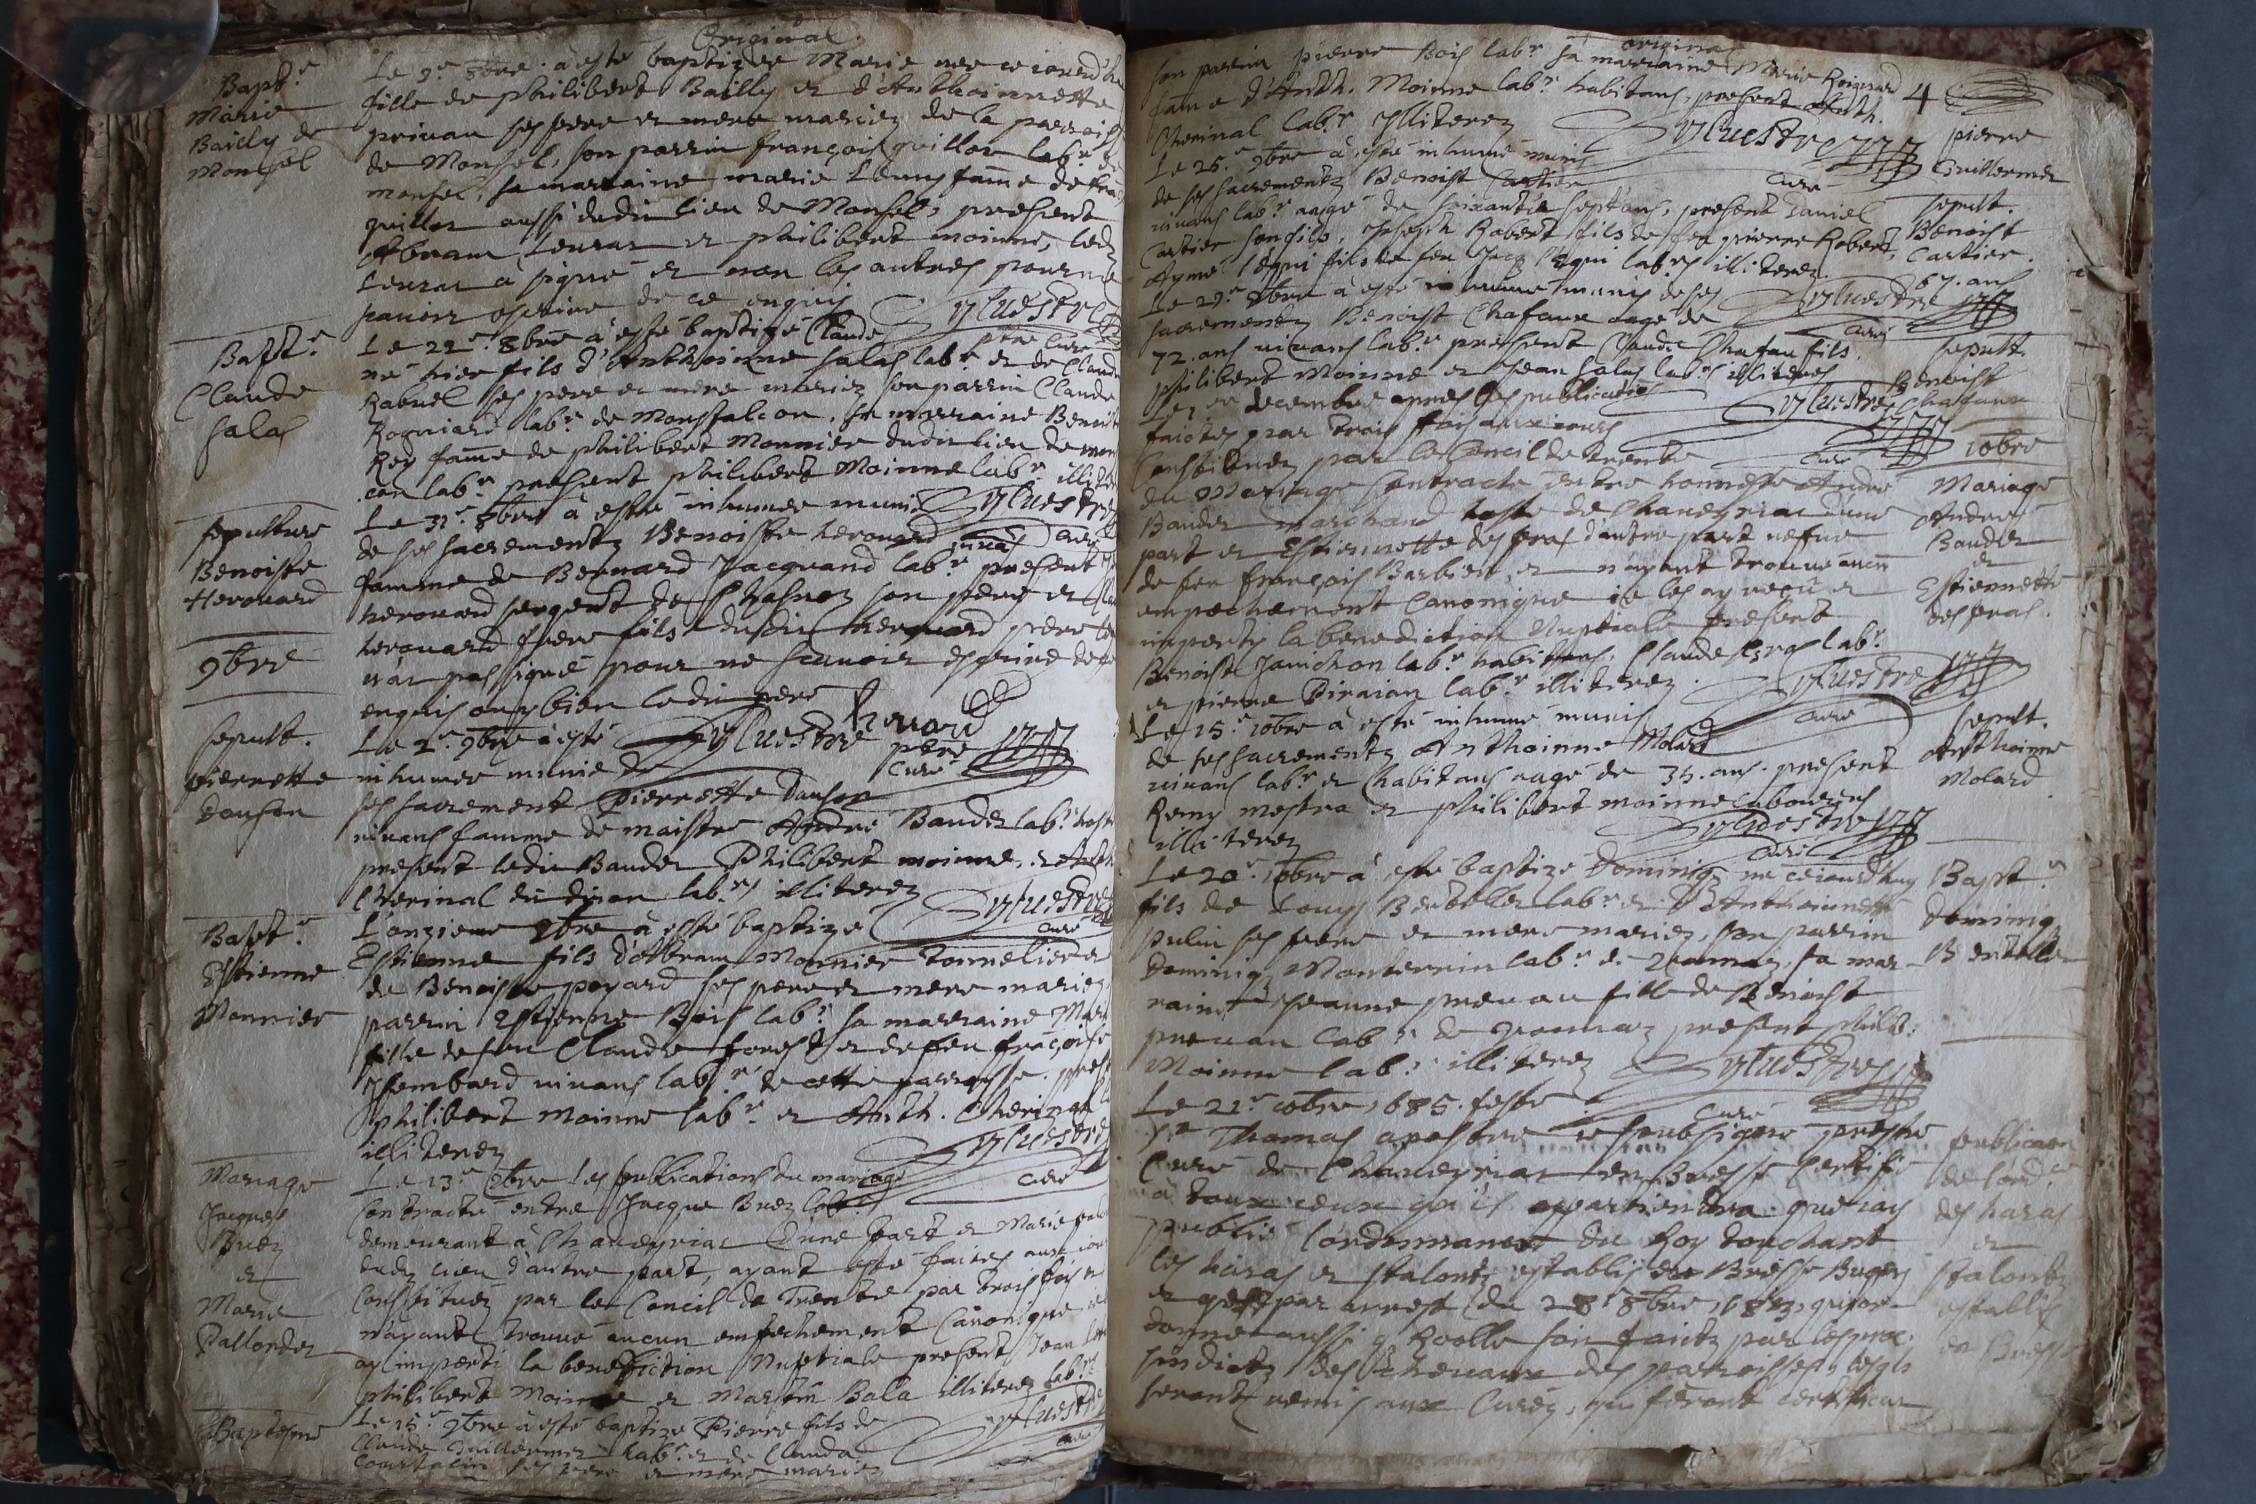 Original
Bapt.e
Marie
Bailly de
Monsel
Le 9.e 8bre a esté baptizée Marie née ce iourd'hu
fille de Philibert Bailly et d'Anthoinette
priuau ses pere et mere mariez de la parroiss
de Monsel, son parrin françois guillot lab.r de
monsel, sa marraine marie fame de
guillot aussi dudit lieu de Monsel, present
Abram Leurat et philibert moinne, led.
Leurat à signé et non les autres pour ne
scauoir escrire de ce enquis
Syluestre
Bapt.e
Claude
Salas
Le 22.e 8bre a esté baptizé Claude
né hier fils d'Anthoinne Salas lab.r et de Claud
Rabuel ses pere et mere mariez son parrin Claude
Rogniard lab.r de Montfalcon, sa marraine Benoiste
Rey fame de philibert Monnier dudit lieu de mon
con lab.r present philibert Moinne lab.r illit
Syluestre
curé
Sepulture
Benoiste
Herouard
Le 31.e 8bre à esté inhumée munie
de ses sacrementz Benoiste herouard
famme de Bernard Jacquand lab.r present
herouard sergent de Chasnoz son pere et
herouard frere fils dudit herouard pere
n'at pas signé pour ne scauoir escrire de ce
enquis ouy bien ledit pere
herouard
pere
Syluestre
curé
9bre
Sepult.
pierrette
Danson
Le 2.e 9bre a esté
inhumée munie de
ses sacrement Pierrette Danson
viuans famme de maistre André Baudet lab.r hoste
present ledit Baudet Philibert moinne, et Anth
Cherinal dudit lieu lab.rs illiterez
Syluestre
curé
Bapt.e
Estienne
Monnier
L'onzieme 9bre à esté baptizé
Estienne fils d'Abram Monnier tonnelier et
de Benoiste poyard ses pere et mere mariez
parrin Estienne Bois lab.r sa marraine Mar
fille de feu Claude forest et de feu françoise
Chambard viuans lab.r de cette parroisse. pres
philibert Moinne lab.r et Anth. Cherinal
illiterez
Syluestre
curé
Mariage
Jacques
Buez
et
Marie
Pallordet
Le 13.e 9bre les publications du mariage
contracté entre Jacque Buez lab.r
demeurant à Chaueyriat d'une part et Marie pal
dudit lieu d'autre part, ayant esté faites aux iou
constituez par le Concil de Trente par trois fois et
n'ayant trouué aucun empechement Canonique
ay imperti la benediction Nuptiale present Jean
philibert Moinne et Martin Bala illiterez lab.rs
Syluestre
curé
Baptesme
Le 15.e 9bre a esté baptizé Pierre fils de
Claude Guillermet lab.r et de Clauda
ses pere et mere mariez
original
4
son parrin pierre Bois lab.r sa marraine Marie Roignard
fame d'Anth. Moinne lab.r habitans, present Anth.
Cherinal lab.r illiterez
Syluestre
curé
pierre
Guillermet
Le 25.e 9bre à esté inhumé munis
de ses sacrementz Benoist Cartier
viuans lab.r aagé de soixante sept ans, present Daniel
Cartier son fils, Joseph Robert fils de feu pierre Robert,
Aymé fils de feu lab.rs illiterez
Syluestre
curé
Sepult.
Benoist
Cartier.
67. ans
Le 29.e 9bre à esté inhumé munis de ses
sacrementz Benoist Chafaux aagé de
72. ans viuans lab.r present Claude Chafau fils.
philibert Moinne et Jean Salas lab.rs illiterez
Syluestre
curé
Sepult.
Benoist
Chafaux
10bre
Mariage
André
Baudet
et
Estiennette
des pras.
decembre apres les publications
faictes par trois fois aux iours
Constituez par le Concil de trente
du Mariage contracté entre honneste André
Baudet marchand hoste de Chaueyriat d'une
part et Estiennette des pras d'autre part vefue
de feu françois Barbier, et n'ayant trouué aucun
empechement Canonique ie les ay receu et
imperty la benediction Nuptiale present
Benoist Janichon lab.r habitans, Claude lab.r
et pierre lab.r illiterez.
Syluestre
curé
Sepult.
Anthoinne
Molard
Le 15.e 10bre à esté inhumé munis
de ses sacrementz Anthoinne Molard
viuans lab.r et habitans aagé de 35. ans. present
Remy mestra et philibert moinne laboureurs
illiterez
Syluestre
curé
Bapt.e
Dominiq
Berthellet
Le 20.e 10bre à esté baptizé Dominiq né ce iourd'huy
fils de Louys Berthellet lab.r et d'Anthoinnette
pulin ses pere et mere mariez, son parrin
Dominiq Monternin lab.r de sa mar-
raine Jeanne preuau fille de Benoist
preuau lab.r de present philib.
Moinne lab.r illiterez
Syluestre
curé
publicaon
de l'ord.ce
des haras
et
Stalontz
establis
en Bresse
Le 21.e 10bre, 1685. feste
S.t Thomas apostre ie soubsigné prestre
Curé de Chaueyriat en Bresse Certifie
à toux ceux qu'il appartiendra. que i'ay
publié l'ordonnance du Roy touchant
les haras et stalontz establis en Bresse Bugey
et gex par arrest du 28.e 8bre, 1683, qui or-
donne aussi q Roolle soit faictz par les
sindictz des cheuaux des parroisses, lesqls
seront remis aux Curez, qui feront certificat